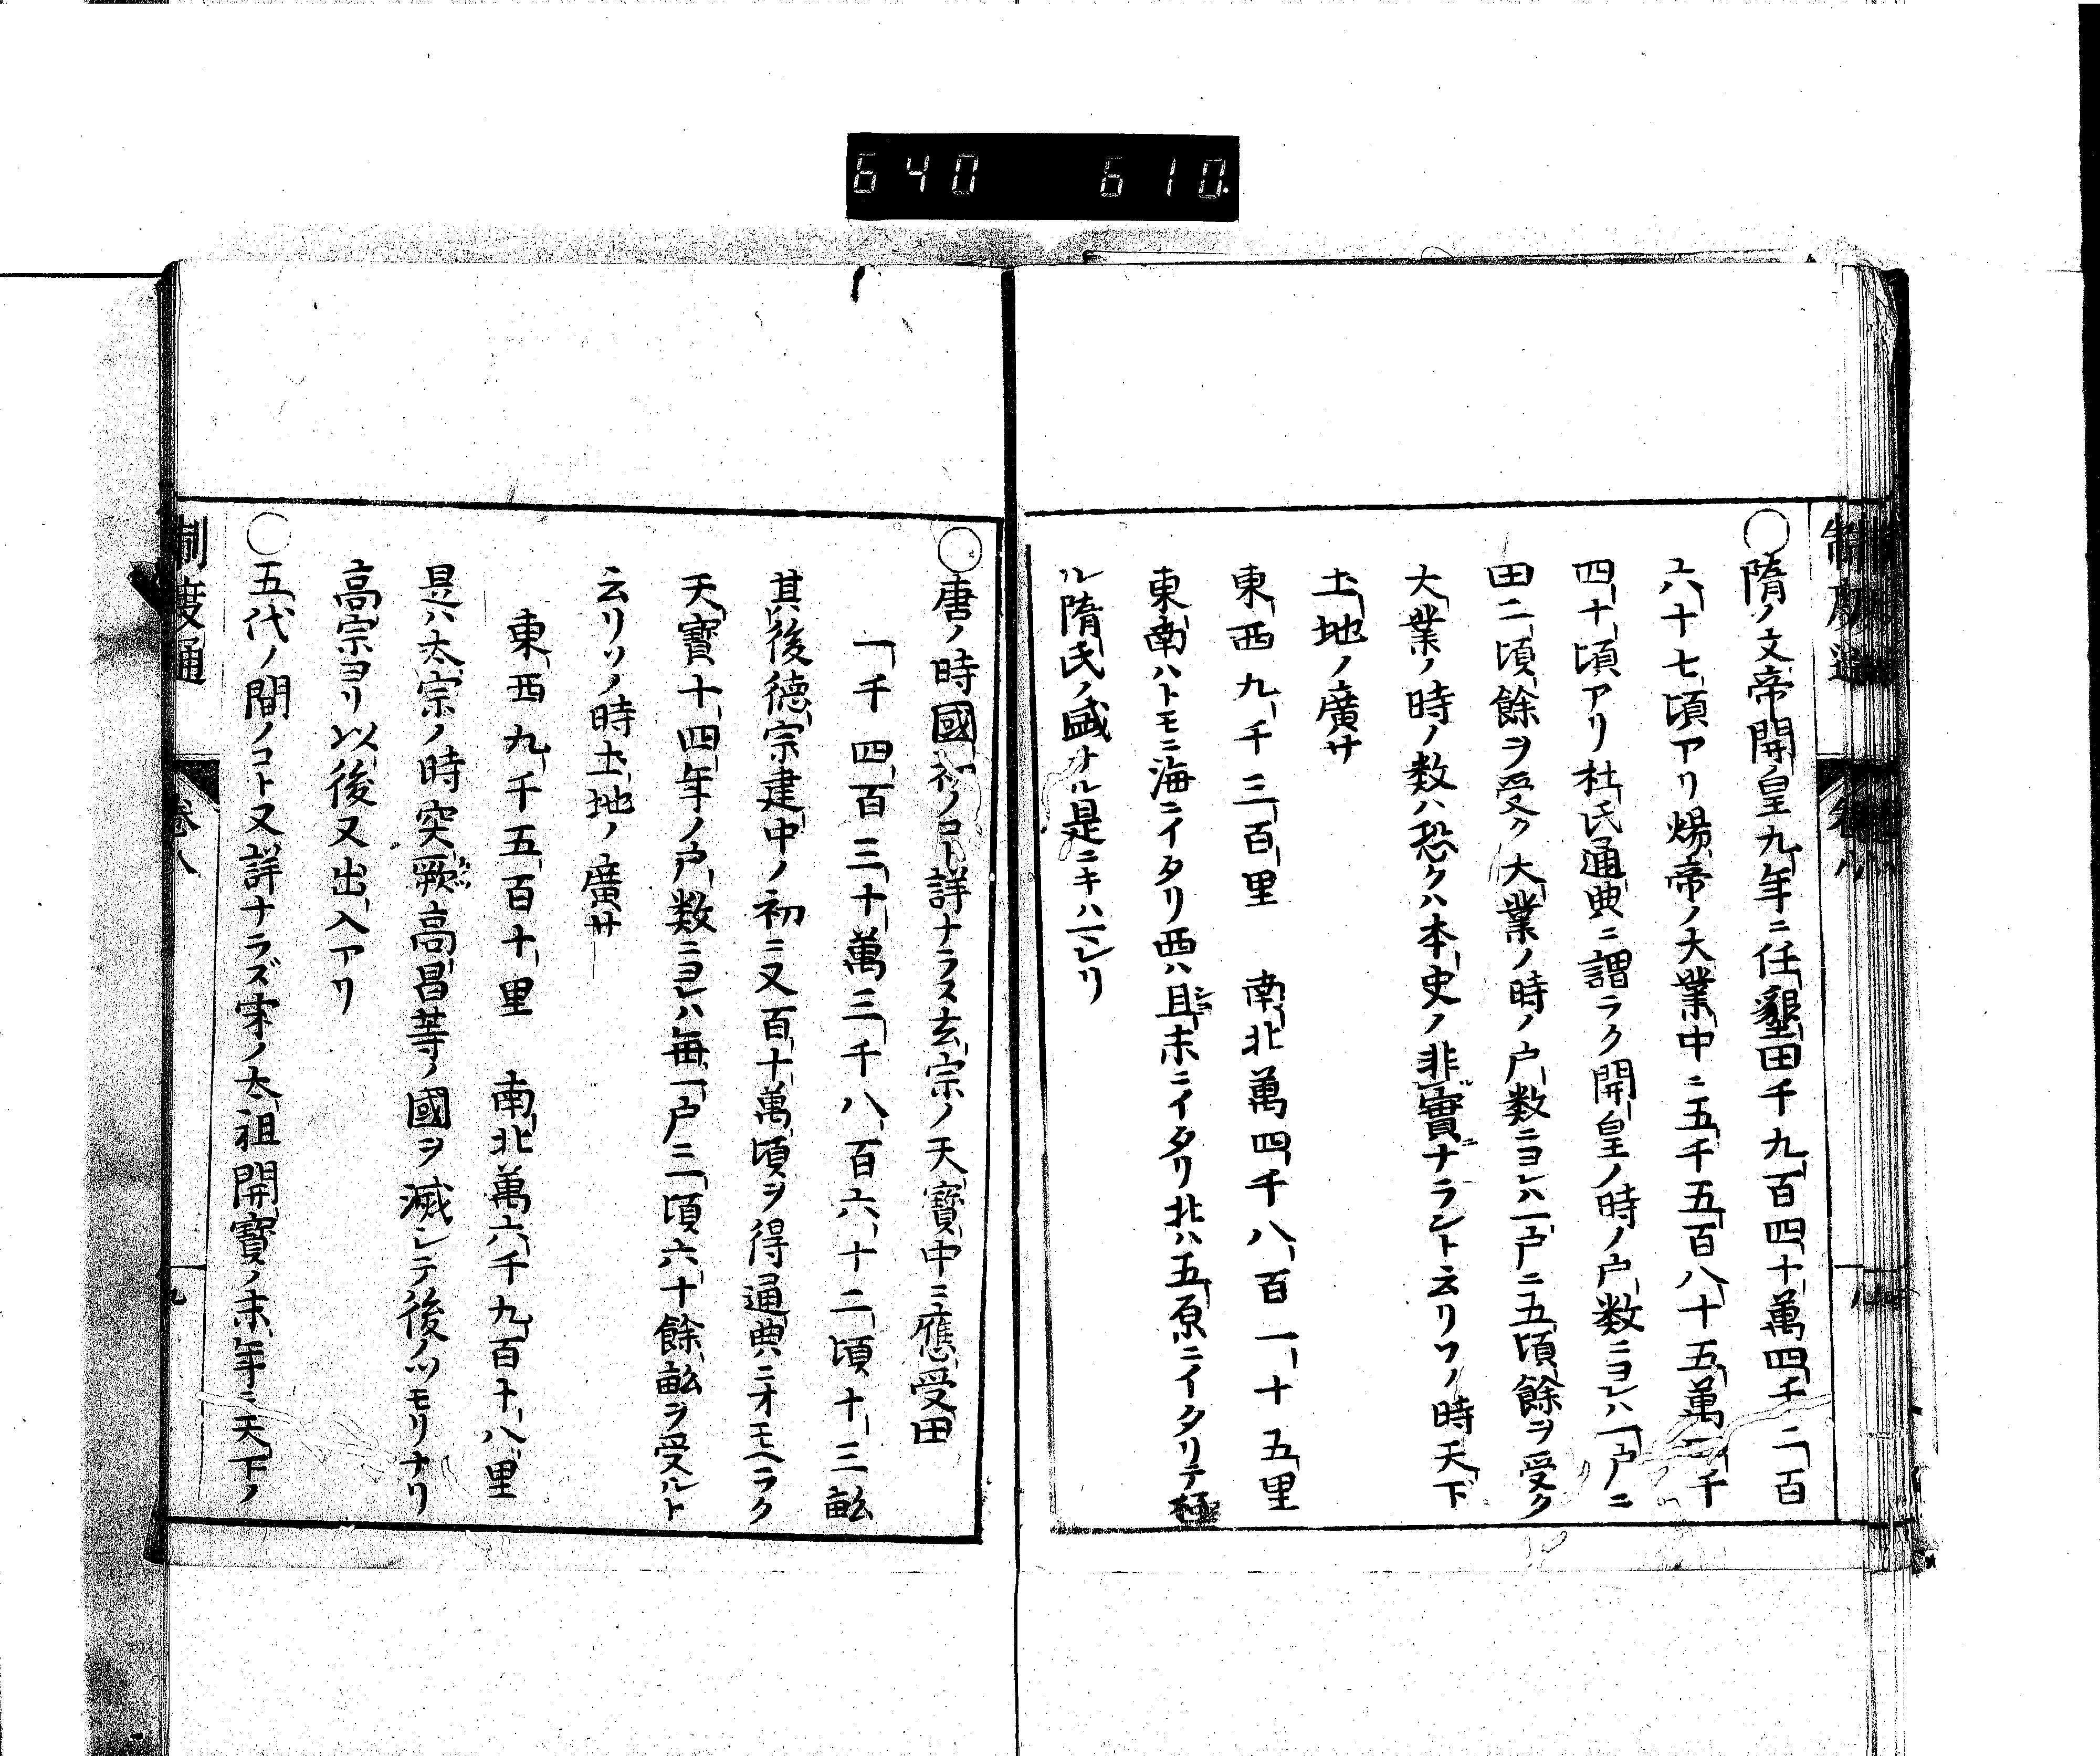 640 610.
制度通 卷八
○隋ノ文帝開皇九年ニ任墾田千九百四十萬四千二百
六十七頃アリ煬帝ノ大業中ニ五千五百八十五萬二千
四十頃アリ杜氏通典ニ謂ラク開皇ノ時ノ戸数ニヨレハ一戸ニ
田二頃餘ヲ受ク大業ノ時ノ戸数ニヨレハ一戸ニ五頃餘ヲ受ク
大業ノ時ノ数ハ恐クハ本史ノ非實ナラント云リソノ時天下
土地ノ廣サ
東西九千三百里 南北萬四千八百一十五里
東南ハトモニ海ニイタリ西ハ且末ニイタリ北ハ五原ニイタリテ極
ル隋氏ノ盛ナル是ニキハマレリ
○唐ノ時國初ノコト詳ナラス玄宗ノ天寶中ニ應受田
一千四百三十萬三千八百六十二頃十三畝
其後德宗建中ノ初ニ又百十萬頃ヲ得通典ニオモヘラク
天寶十四年ノ戸数ニヨレハ毎一戸三頃六十餘畝ヲ受ルト
云リソノ時土地ノ廣サ
東西九千五百十里 南北萬六千九百十八里
是ハ太宗ノ時突厥高昌等ノ國ヲ滅シテ後ノツモリナリ
高宗ヨリ以後又出入アリ
○五代ノ間ノコト又詳ナラズ宋ノ太祖開寶ノ末年ニ天下ノ
制度通 卷八 九